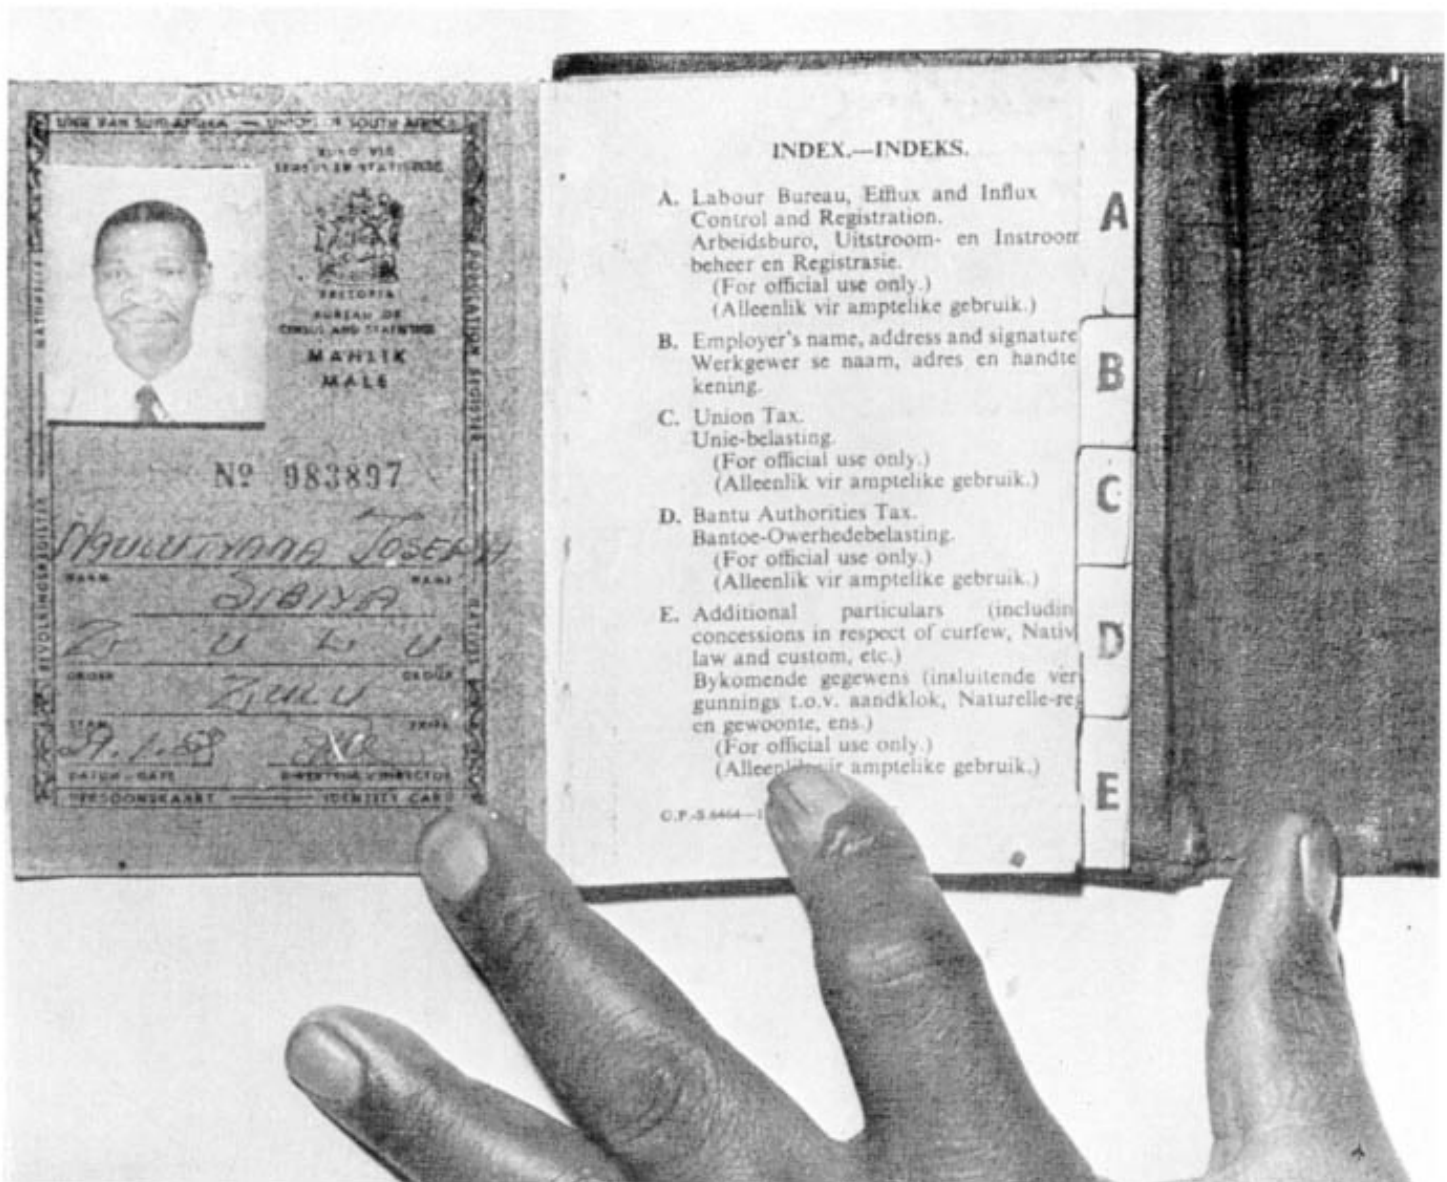 UNIE VAN SUID-AFRIKA — UNION OF SOUTH AFRICA
BURO VIR
SENSUS EN STATISTIEK
PRETORIA
BUREAU OF
CENSUS AND STATISTICS
MANLIK
MALE
POPULATION REGISTER
BEVOLKINGSREGISTER
NATIVES
No 983897
JOSEPH
NAAM NAME
SIBIYA
ZULU
GROEP GROUP
ZULU
STAM TRIBE
29.1.58
DATUM - DATE DIREKTEUR/DIRECTOR
PERSOONSKAART — IDENTITY CARD
INDEX.—INDEKS.
A. Labour Bureau, Efflux and Influx
Control and Registration.
Arbeidsburo, Uitstroom- en Instroom
beheer en Registrasie.
(For official use only.)
(Alleenlik vir amptelike gebruik.)
B. Employer's name, address and signature
Werkgewer se naam, adres en handte
kening.
C. Union Tax.
Unie-belasting.
(For official use only.)
(Alleenlik vir amptelike gebruik.)
D. Bantu Authorities Tax.
Bantoe-Owerhedebelasting.
(For official use only.)
(Alleenlik vir amptelike gebruik.)
E. Additional particulars (includin
concessions in respect of curfew, Nativ
law and custom, etc.)
Bykomende gegewens (insluitende ver
gunnings t.o.v. aandklok, Naturelle-reg
en gewoonte, ens.)
(For official use only.)
(Alleenlik vir amptelike gebruik.)
G.P.-S.6464—1
A
B
C
D
E